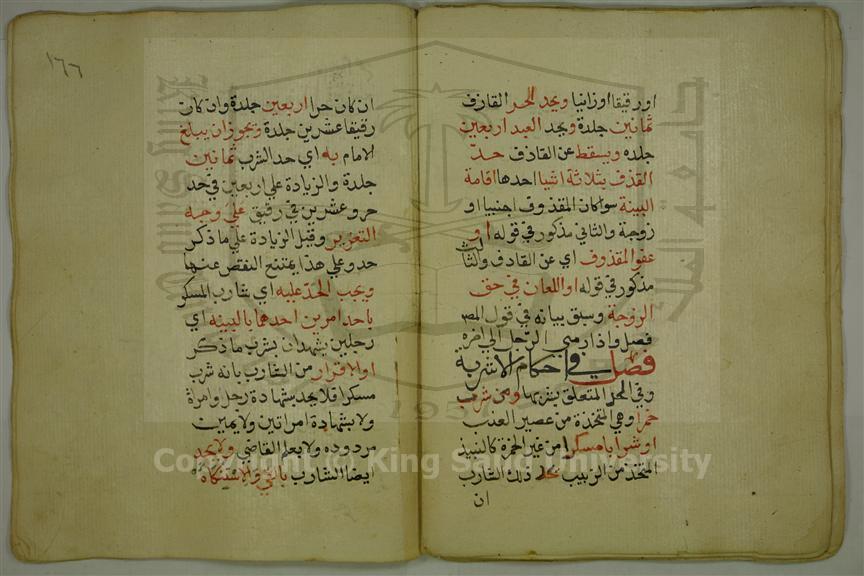 اورقيقا اوزانيا ويحد الحر القاذف
ثمانين جلدة ويحد العبد اربعين
جلده ويسقط عن القاذف حد
القذف بثلاثة اشيا احدها اقامة
البينة سوا كان المقذوف اجنبيا او
زوجة والثاني مذكور في قوله او
عفو المقذوف اي عن القاذف والثالث
مذكور في قوله او اللعان في حق
الزوجة وسبق بيانه في قول المص
فصل واذا رمي الرجل الي اخره
فصل في احكام الاشربة
وفي الحد المتعلق بشربها ومن شرب
خمرا وهي المتخذة من عصير العنب
او شرابا مسكرا من غير الخمرة كالنبيذ
المتخذ من الزبيب يحد ذلك الشارب
ان
١٦٦
ان كان حرا اربعين جلدة وان كان
رقيقا عشرين جلدة ويجوز ان يبلغ
الامام به اي حد الشرب ثمانين
جلدة والزيادة علي اربعين في حد
حر وعشرين في رقيق علي وجه
التعزير وقيل الزيادة علي ما ذكر
حد وعلي هذا يمتنع النقص عنها
ويجب الحد عليه اي شارب المسكر
باحد امرين احدهما بالبينه اي
رجلين يشهدان بشرب ما ذكر
او الاقرار من الشارب بانه شرب
مسكرا فلا يحد بشهادة رجل وامراة
ولا بشهادة امراتين ولا يمين
مردوده ولا بعلم القاضي ولا يحد
ايضا الشارب بالقي والاستنكاه
Copyright © King Saud University
جامعة الملك سعود
1957